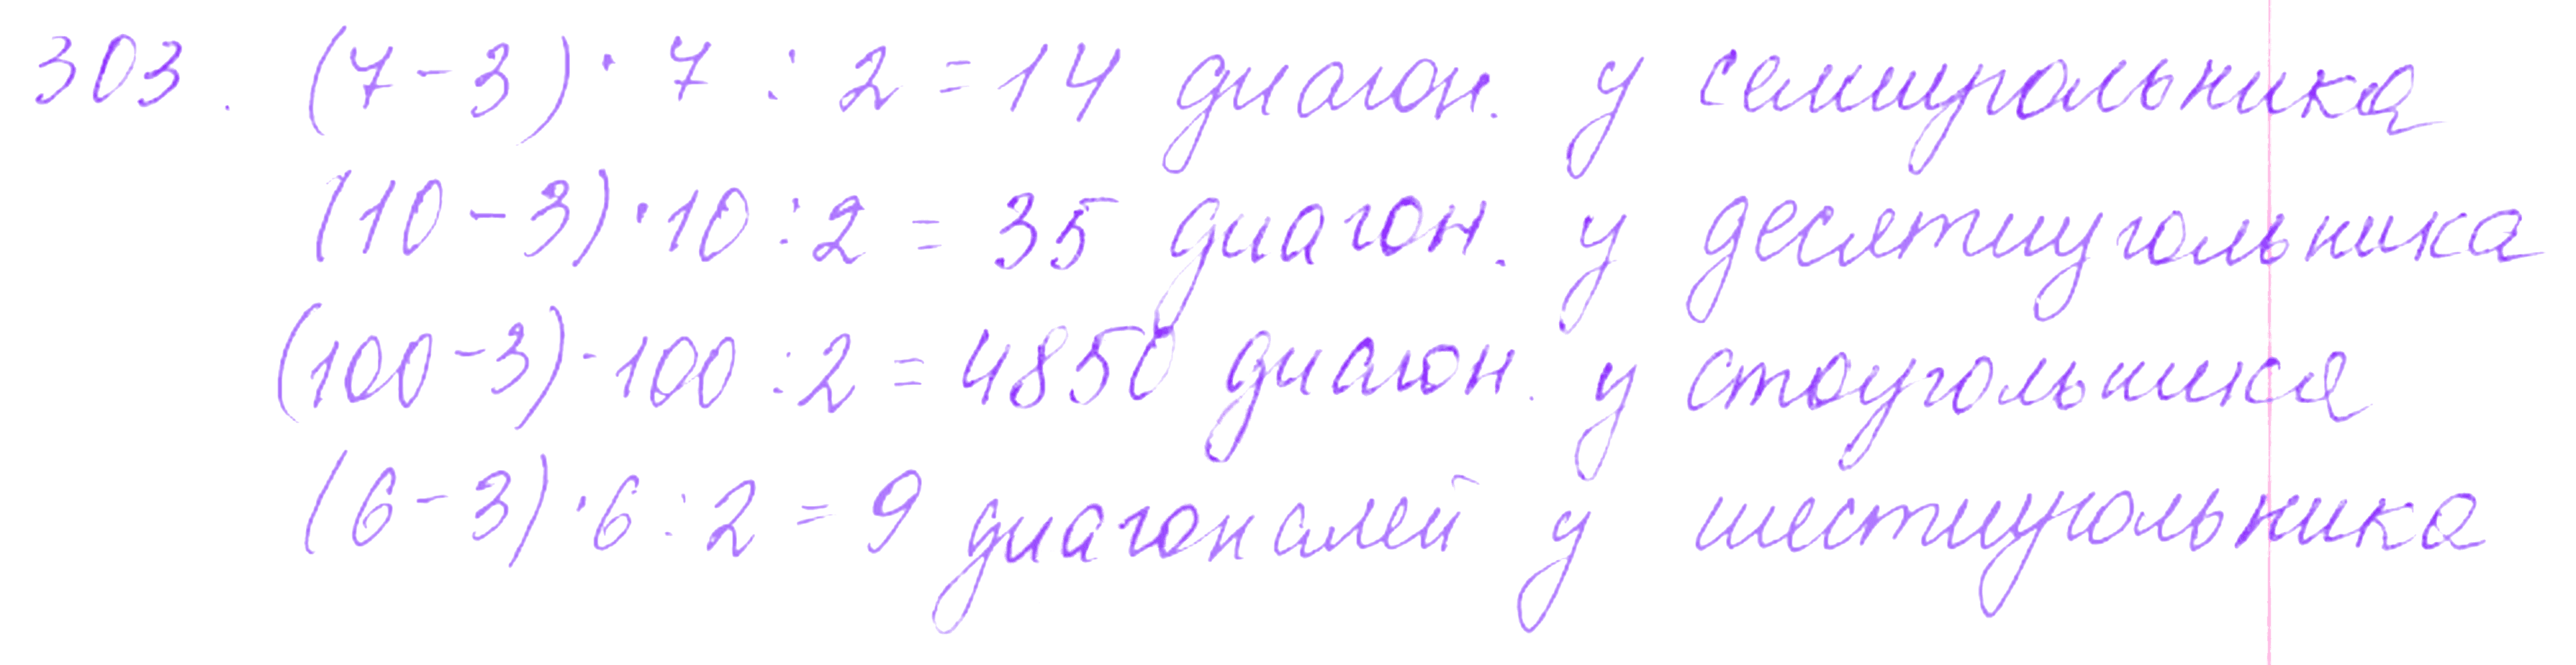 303. (7-3)·7:2=14 диагон. у семиугольника
(10-3)·10:2=35 диагон. у десятиугольника
(100-3)·100:2=4850 диагон. у стоугольника
(6-3)·6:2=9 диагоналей у шестиугольника